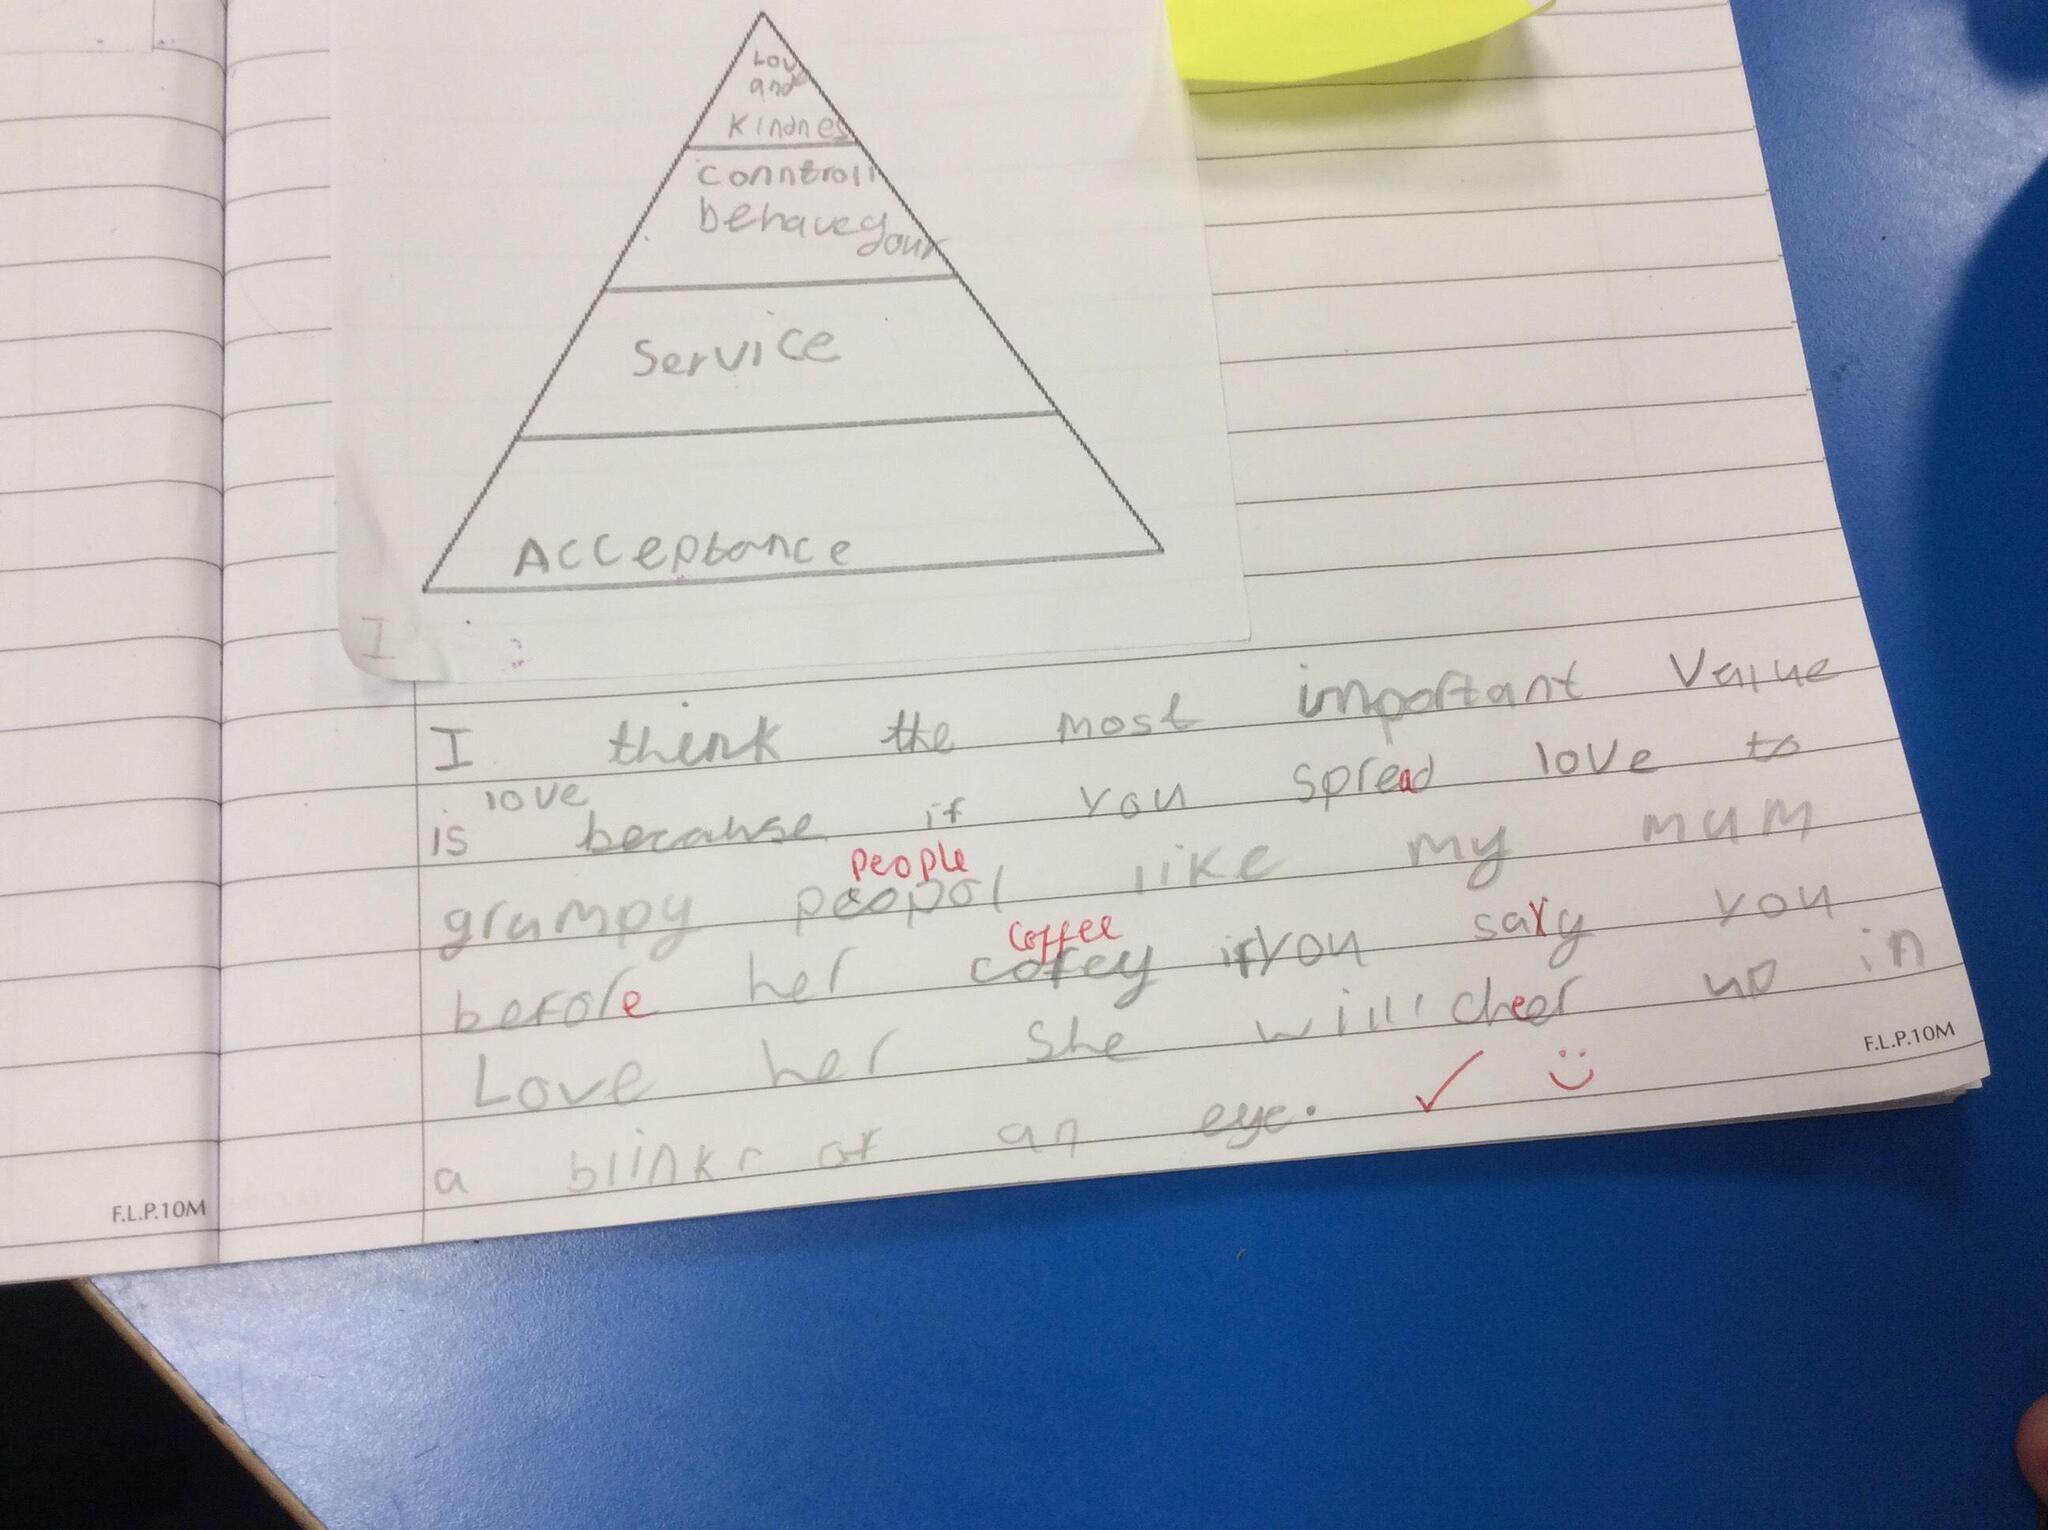 Love
and
Kindnes
conntroll
behaveyour
Service
Acceptance
I
I think the most important Value
love
is because if you spread love to
people
grumpy peopol like my mum
coffee
before her cofey if you say you
Love her she will cheer up in
a blink of an eye.
F.L.P.10M
F.L.P.10M